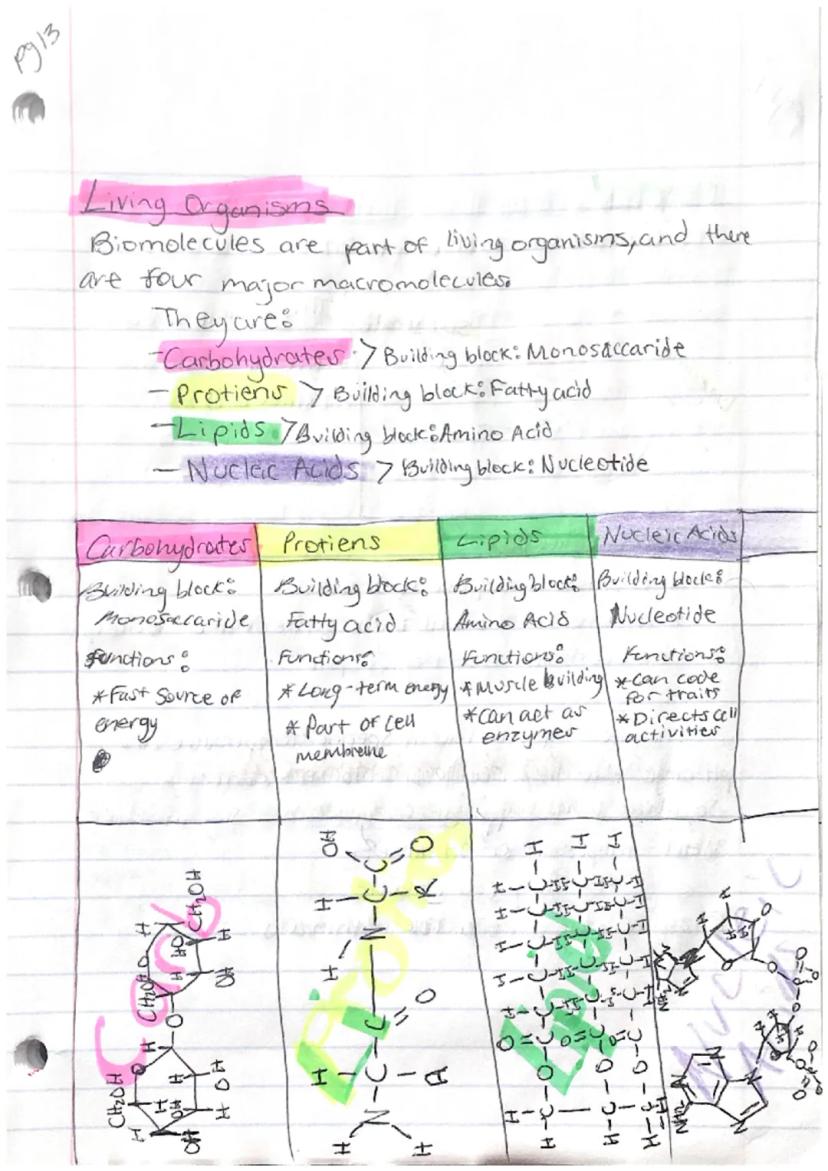 pg 13
Living Organisms
Biomolecules are part of living organisms, and there
are four major macromolecules.
They are:
-Carbohydrates > Building block: Monosaccaride
- Protiens > Building block: Fatty acid
- Lipids > Building block: Amino Acid
- Nucleic Acids > Building block: Nucleotide
Carbohydrates
Building block:
Monosaccaride
Functions:
*Fast Source of
energy
Protiens
Building block:
Fatty acid
Functions:
*Long-term energy
* Part of cell
membrane
Lipids
Building block:
Amino Acid
Functions:
*Muscle Building
*Can act as
enzymes
Nucleic Acids
Building block:
Nucleotide
Functions:
*Can code
for traits
*Directs cell
activities
Carb
CH₂OH
CH₂OH
CH₂OH
Lipid